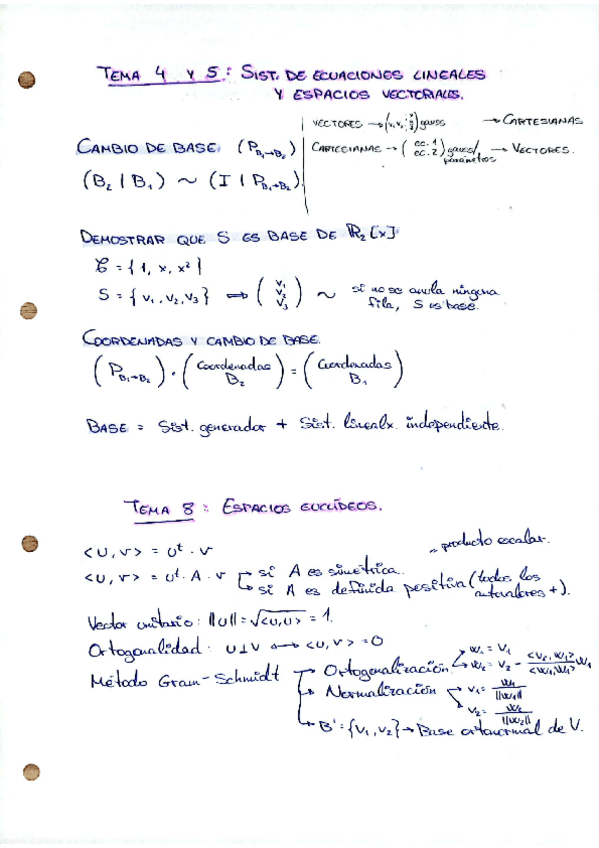 TEMA 4 Y 5: SIST. DE ECUACIONES LINEALES
Y ESPACIOS VECTORIALES.
VECTORES → (v₁ v₂ | x y z) gauss → CARTESIANAS
CARTESIANAS → (ec. 1 ec. 2) gauss/parámetros → VECTORES.
CAMBIO DE BASE (P_{B₁→B₂})
(B₂ | B₁) ~ (I | P_{B₁→B₂})
DEMOSTRAR QUE S ES BASE DE ℝ₂[x]
C = {1, x, x²}
S = {v₁, v₂, v₃} ⟺ (v₁ v₂ v₃) ~ si no se anula ninguna
fila, S es base.
COORDENADAS Y CAMBIO DE BASE.
(P_{B₁→B₂}) · (Coordenadas B₂) = (Coordenadas B₁)
BASE = Sist. generador + Sist. linealx. independiente.
TEMA 8: ESPACIOS EUCLÍDEOS.
<u, v> = uᵗ · v
producto escalar.
<u, v> = uᵗ · A · v → si A es simétrica.
→ si A es definida positiva (todos los
autovalores +).
Vector unitario: ||u|| = √<u,u> = 1.
Ortogonalidad: u⊥v ⟷ <u, v> = 0
Método Gram-Schmidt → Ortogonalización → w₁ = v₁
→ w₂ = v₂ - <v₂, w₁>/<w₁, w₁> w₁
→ Normalización → v₁ = w₁/||w₁||
→ v₂ = w₂/||w₂||
→ B' = {v₁, v₂} → Base ortonormal de V.